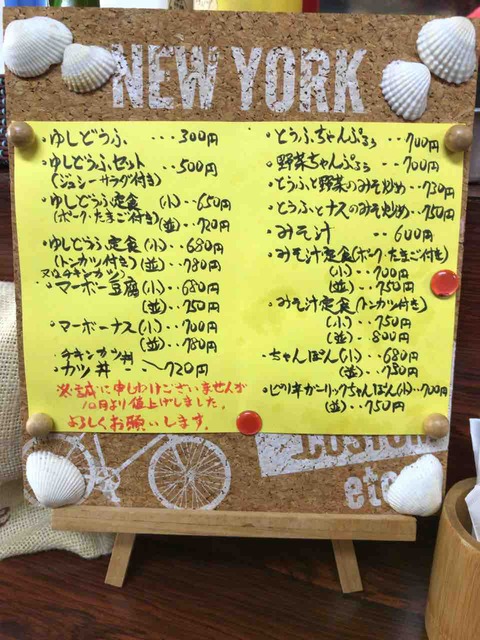 NEW YORK
・ゆしどうふ ・・・300円
・ゆしどうふセット ・・・500円
(ジューシーサラダ付き)
・ゆしどうふ定食 (小)・・650円
(ポーク・たまご付き) (並)・・720円
・ゆしどうふ定食 (小)・・680円
(トンカツ付き) (並)・・780円
又はチキンカツ
・マーボー豆腐 (小)・・680円
(並)・・750円
・マーボーナス (小)・・700円
(並)・・780円
チキンカツ丼
・カツ丼 ・・720円
※誠に申しわけございませんが
10月より値上げしました。
よろしくお願いします。
・とうふちゃんぷるぅ ・・700円
・野菜ちゃんぷるぅ ・・700円
・とうふと野菜のみそ炒め・・730円
・とうふとナスのみそ炒め・・750円
・みそ汁 ・・600円
・みそ汁定食(ポーク・たまご付き)
(小)・・700円
(並)・・750円
・みそ汁定食(トンカツ付き)
(小)・・750円
(並)・・800円
・ちゃんぽん(小)・・680円
(並)・・750円
・ピリ辛ガーリックちゃんぽん(小)・・700円
(並)・・750円
etc